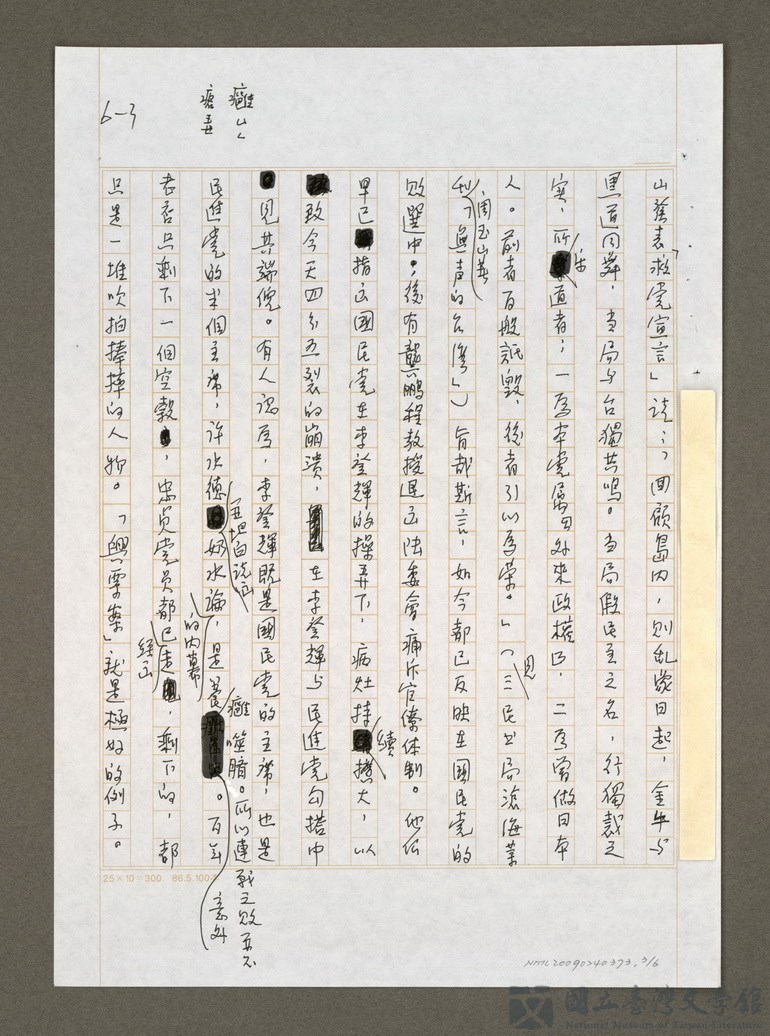 山發表「救党宣言」說：「回顧島內，則乱象日起，金牛与
黑道同舞，当局与台獨共鳴。当局假民主之名，行獨裁之
实，所乐道者；一為本党屬曰外來政權已，二為曾做日本
人。前者百般詆毀，後者引以為荣。」（見三民书局滄海叢
刊周玉山著「無声的台灣」）旨哉斯言，如今都已反映在國民党的
敗選中。後有龔鵬程教授退出陆委會痛斥官僚体制。他们
早已指出國民党在李登輝的操弄下，病灶持續擴大，以
致今天四分五裂的崩潰，在李登輝与民進党勾搭中
見其端倪。有人認為，李登輝既是國民党的主席，也是
民進党的半個主席，許水德奶水論，是養癰噬臍。所以連戰之敗並不意外。百年
老店只剩下一個空殼，忠贞党员都已走，剩下的，都
只是一堆吹拍捧摔的人物。「興票案」就是極好的例子。
坦白說出
的內幕
經已
癰
6-3
25×10=300 86.5.100
NMTL20090240373.3/6
國立臺灣文學館
National Museum of Taiwan Literature